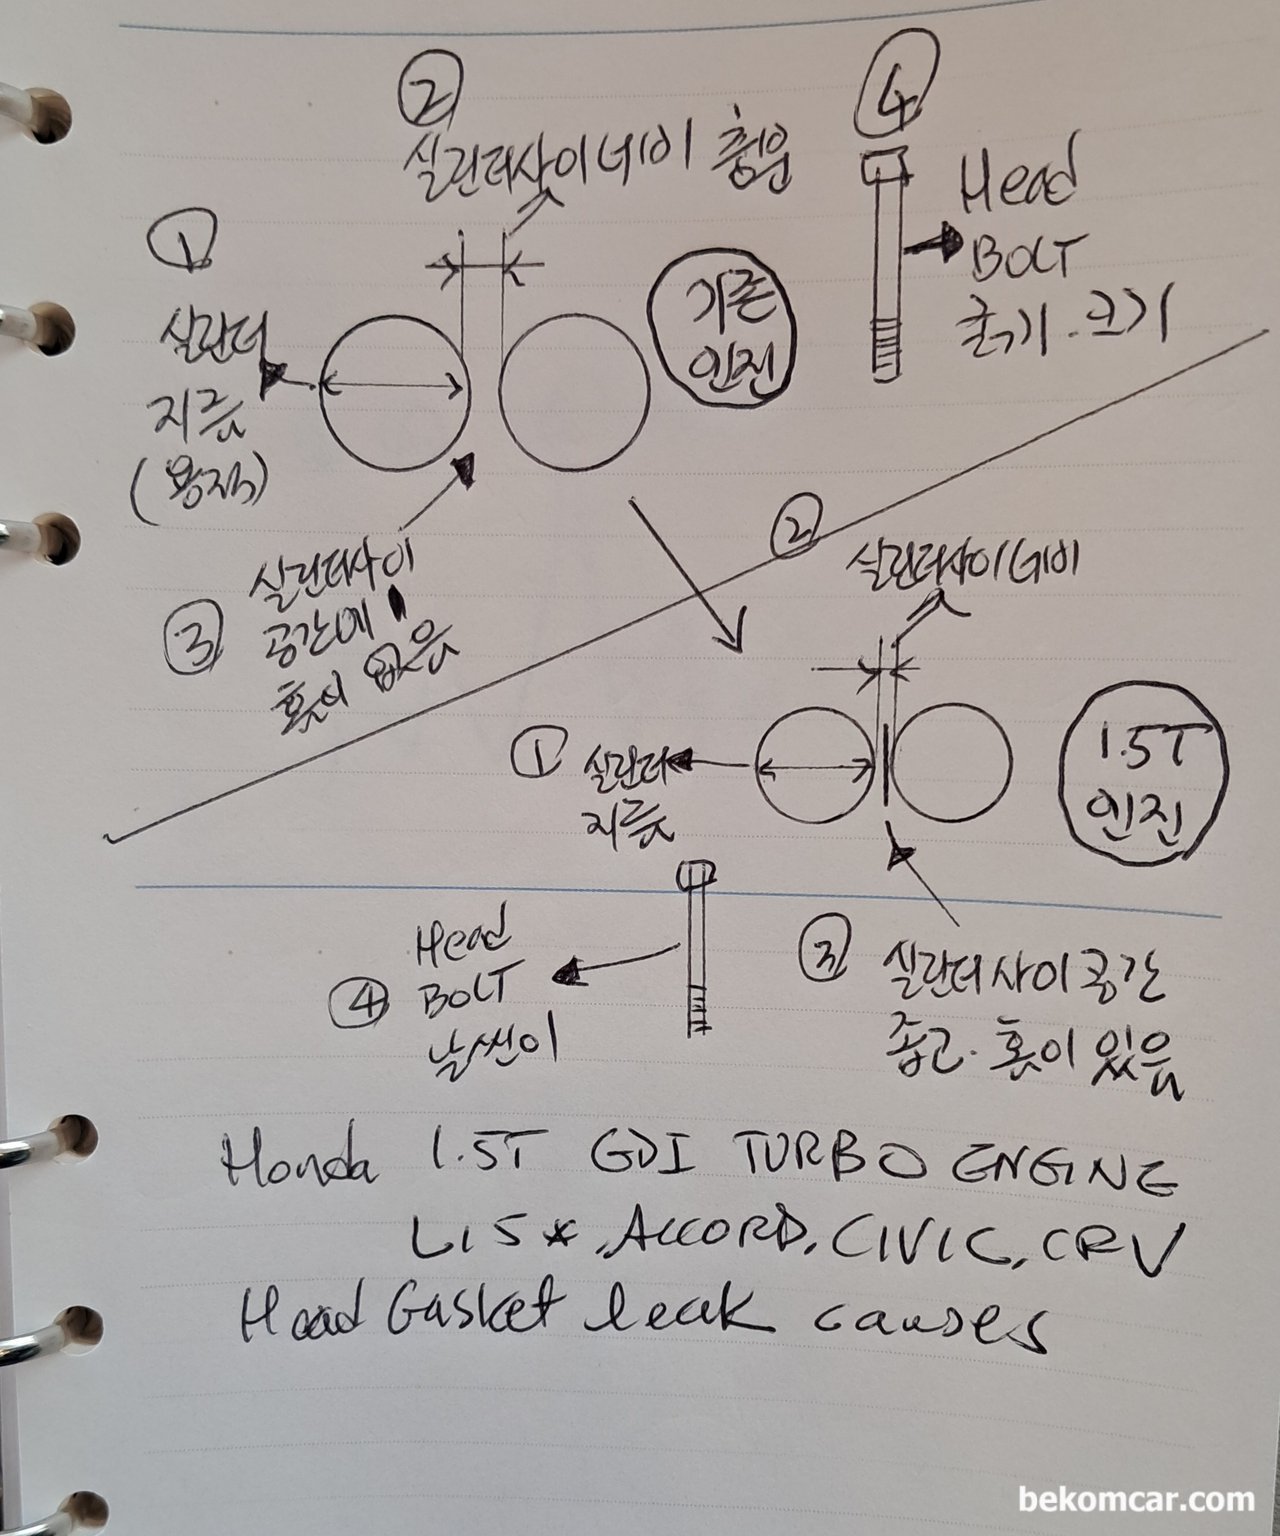 ②
실린더사이 너비 충분
④
Head
BOLT
굵기.크기
①
실린더
지름
(용적)
기존
엔진
③
실린더사이
공간에
홈이 없음
②
실린더사이 너비
①
실린더
지름
1.5T
엔진
④
Head
BOLT
날씬이
③
실린더사이 공간
좁고. 홈이 있음
Honda 1.5T GDI TURBO ENGINE
L15*, ACCORD, CIVIC, CRV
Head Gasket leak causes
bekomcar.com